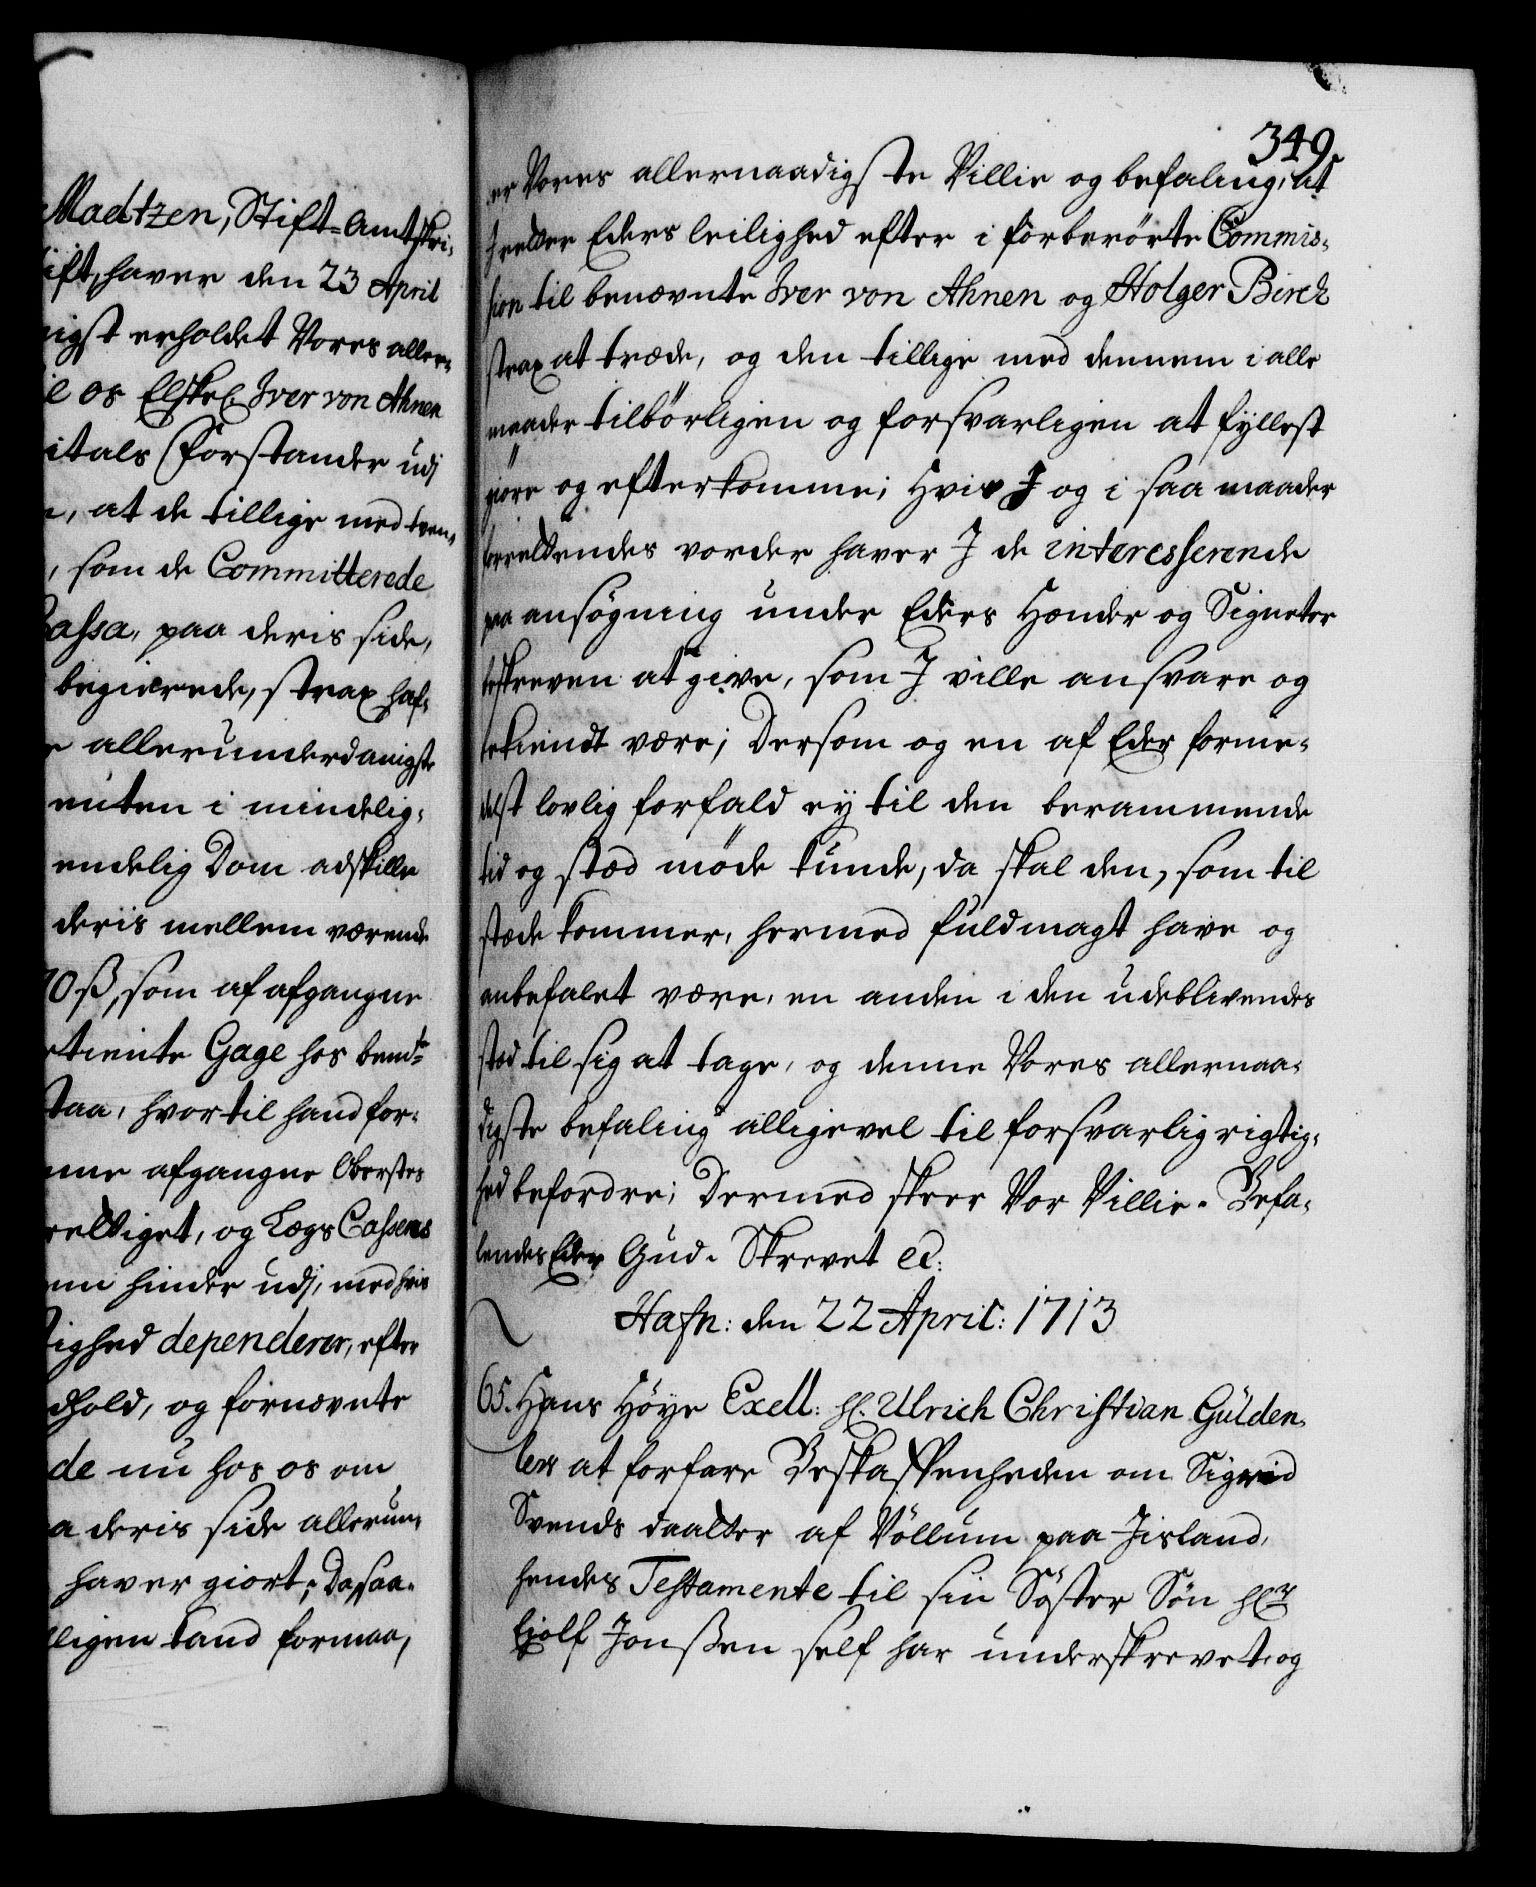 Madtzen, Stift-Amtskri-
ift, haver den 23 April
nigst erholdet Vores aller-
os Elskel. Iver von Ahnen
itals Forstander udj
at de tillige med tven-
, som de Committerede
Cassa, paa deris side,
begierede, strax haf-
allerunderdanigste
enten i mindelig-
endelig Dom adskille
deris mellem værende
0 ß, som af afgangne
rtiente Gage hos bemdte
staa, hvortil hand for-
afgangne Oberstes
og Lægs Cassens
hinder udj, med hvis
ighed dependerer, efter
dhold, og fornævnte
de nu hos os om
a deris side allerun-
haver giort; Da saa-
ligen tand formaa,
349.
er Vores allernaadigste Villie og befaling, at
hvelver Eders leilighed efter i forberörte Commis-
sion til benævnte Iver von Ahnen og Holger Birch
strax at træde, og den tillige med dennem i alle
maader tilbörligen og forsvarligen at fyllest
giöre og efterkomme; Hvis I og i saa maader
forrettendes vorder haver I de interesserende
paa ansögning under Eders Hænder og Signeter
beskreven at give, som I ville ansvare og
bekiendt være; Dersom og en af Eder forme-
delst lovlig forfald ey til den berammende
tid og stæd möde kunde, da skal den, som til
stæde kommer, hermed fuldmagt have og
anbefalet være, en anden i den udeblivendes
stæd til sig at tage, og denne Vores allernaa-
digste befaling alligevel til forsvarlig rigtig-
hed befordre; Dermed skeer Vor Villie. Befa-
lendes Eder Gud. Skrevet ec:
Hafn: den 22 April: 1713
65. Hans Höye Excell: Hl. Ulrich Christian Gülden-
lew at forfare Beskaffenheden om Sigrid
Svends daatter af Völlum paa Jisland,
hendes Testamente til sin Söster Sön Hlr
Eiolf Jonßen self har underskrevet, og